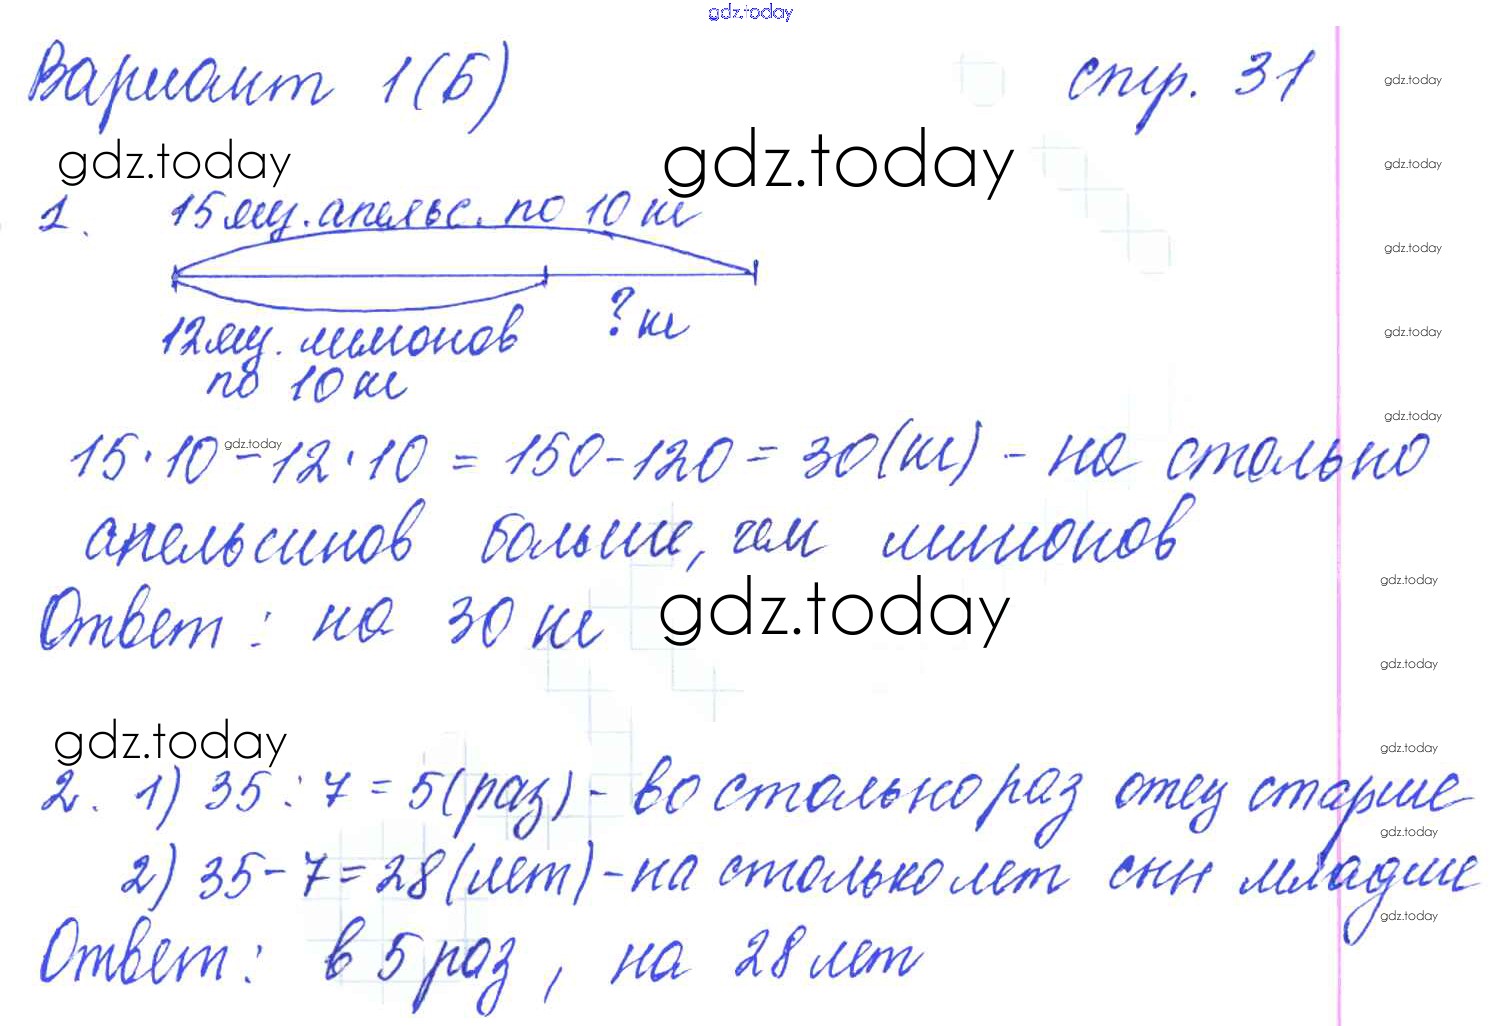 gdz.today
Вариант 1(Б) стр. 31
gdz.today
gdz.today gdz.today
gdz.today
1. 15 ящ. апельс. по 10 кг
gdz.today
12 ящ. лимонов ? кг
gdz.today
по 10 кг
gdz.today
15·10 - 12·10 = 150-120 = 30(кг) - на столько
gdz.today
апельсинов больше, чем лимонов
gdz.today
Ответ: на 30 кг gdz.today
gdz.today
gdz.today gdz.today
2. 1) 35 : 7 = 5(раз) - во столько раз отец старше
gdz.today
2) 35 - 7 = 28 (лет) - на столько лет сын младше
gdz.today
Ответ: в 5 раз, на 28 лет